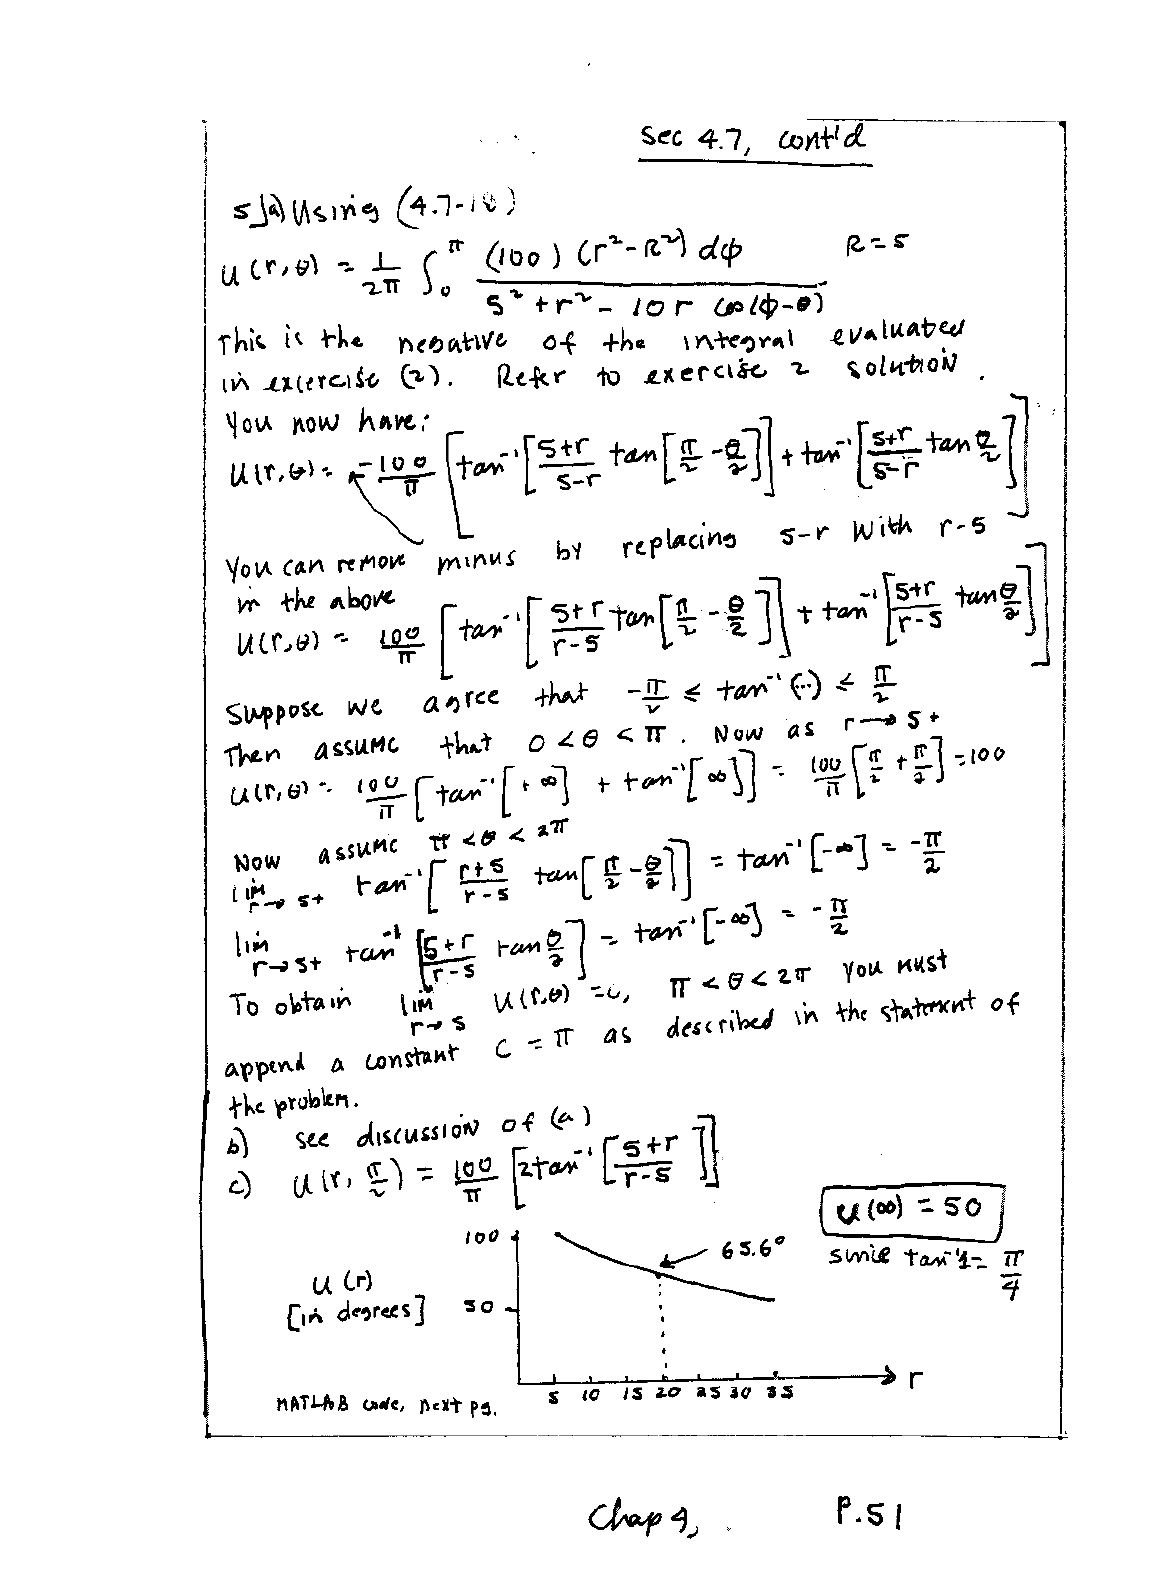 Sec 4.7, cont'd
5](a) Using (4.7-10)
u(r,θ) = 1/2π ∫₀^π (100)(r²-R²) dϕ / 5²+r²-10r cos(ϕ-θ)   R=5
This is the negative of the integral evaluated
in exercise (2). Refer to exercise 2 solution.
You now have:
u(r,θ) = -100/π [tan⁻¹[5+r/5-r tan[π/2 - θ/2]] + tan⁻¹[5+r/5-r tan θ/2]]
You can remove minus by replacing 5-r with r-5
in the above
u(r,θ) = 100/π [tan⁻¹[5+r/r-5 tan[π/2 - θ/2]] + tan⁻¹[5+r/r-5 tan θ/2]]
Suppose we agree that -π/2 ≤ tan⁻¹(...) ≤ π/2
Then assume that 0<θ<π. Now as r→5+
u(r,θ) = 100/π [tan⁻¹[+∞] + tan⁻¹[∞]] = 100/π [π/2 + π/2] = 100
Now assume π<θ<2π
lim r→5+ tan⁻¹[r+5/r-5 tan[π/2 - θ/2]] = tan⁻¹[-∞] = -π/2
lim r→5+ tan⁻¹[5+r/r-5 tan θ/2] = tan⁻¹[-∞] = -π/2
To obtain lim r→5 u(r,θ) = 0, π<θ<2π you must
append a constant C = π as described in the statement of
the problem.
b) see discussion of (a)
c) u(r, π/2) = 100/π [2tan⁻¹[5+r/r-5]]
u(∞) = 50
since tan⁻¹1 = π/4
100
65.6°
u(r)
[in degrees]
50
r
5 10 15 20 25 30 35
MATLAB code, next pg.
Chap 4, P.51